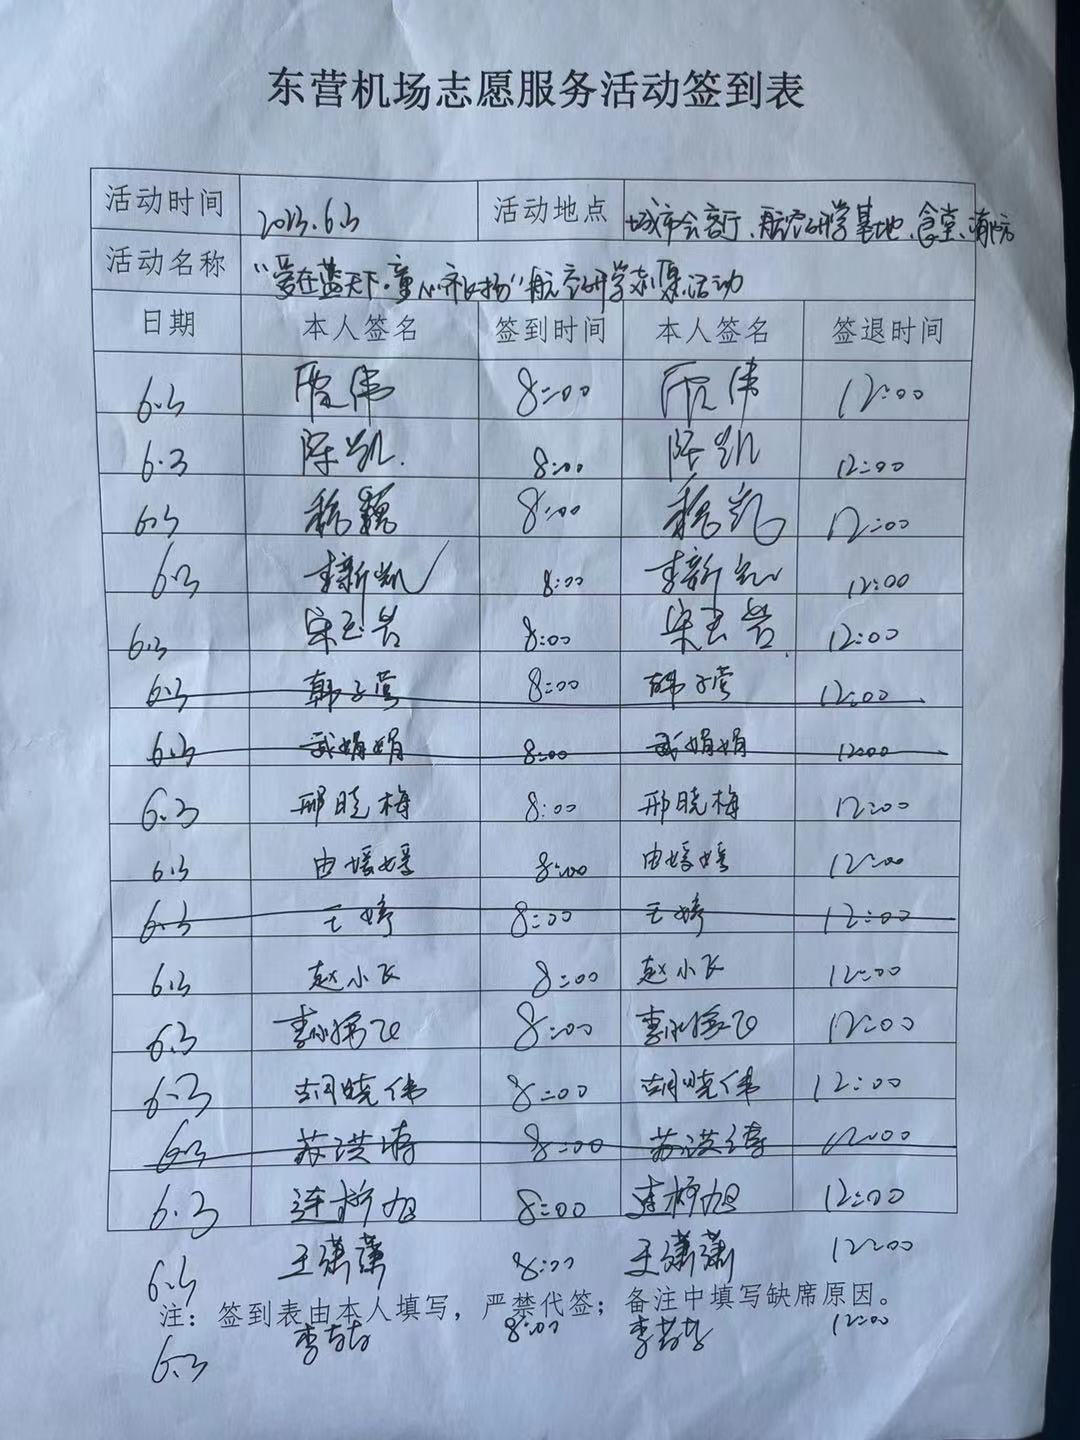 东营机场志愿服务活动签到表
活动时间 2023.6.3 活动地点 城市会客厅、航空研学基地、食堂、消防
活动名称 "爱在蓝天下·童心飞扬"航空研学志愿活动
日期 本人签名 签到时间 本人签名 签退时间
6.3 伟 8:00 伟 12:00
6.3 陈凯 8:00 陈凯 12:00
6.3 8:00 12:00
6.3 李新凯 8:00 李新凯 12:00
6.3 宋玉岩 8:00 宋玉岩 12:00
6.3 韩子莹 8:00 韩子莹 12:00
6.3 武娟娟 8:00 武娟娟 12:00
6.3 邢晓梅 8:00 邢晓梅 12:00
6.3 由媛媛 8:00 由媛媛 12:00
6.3 王婷 8:00 王婷 12:00
6.3 赵小飞 8:00 赵小飞 12:00
6.3 李 8:00 李 12:00
6.3 胡晓伟 8:00 胡晓伟 12:00
6.3 苏洪涛 8:00 苏洪涛 12:00
6.3 连柳旭 8:00 连柳旭 12:00
6.3 王潇潇 8:00 王潇潇 12:00
注：签到表由本人填写，严禁代签；备注中填写缺席原因。
6.3 李 8:00 李 12:00